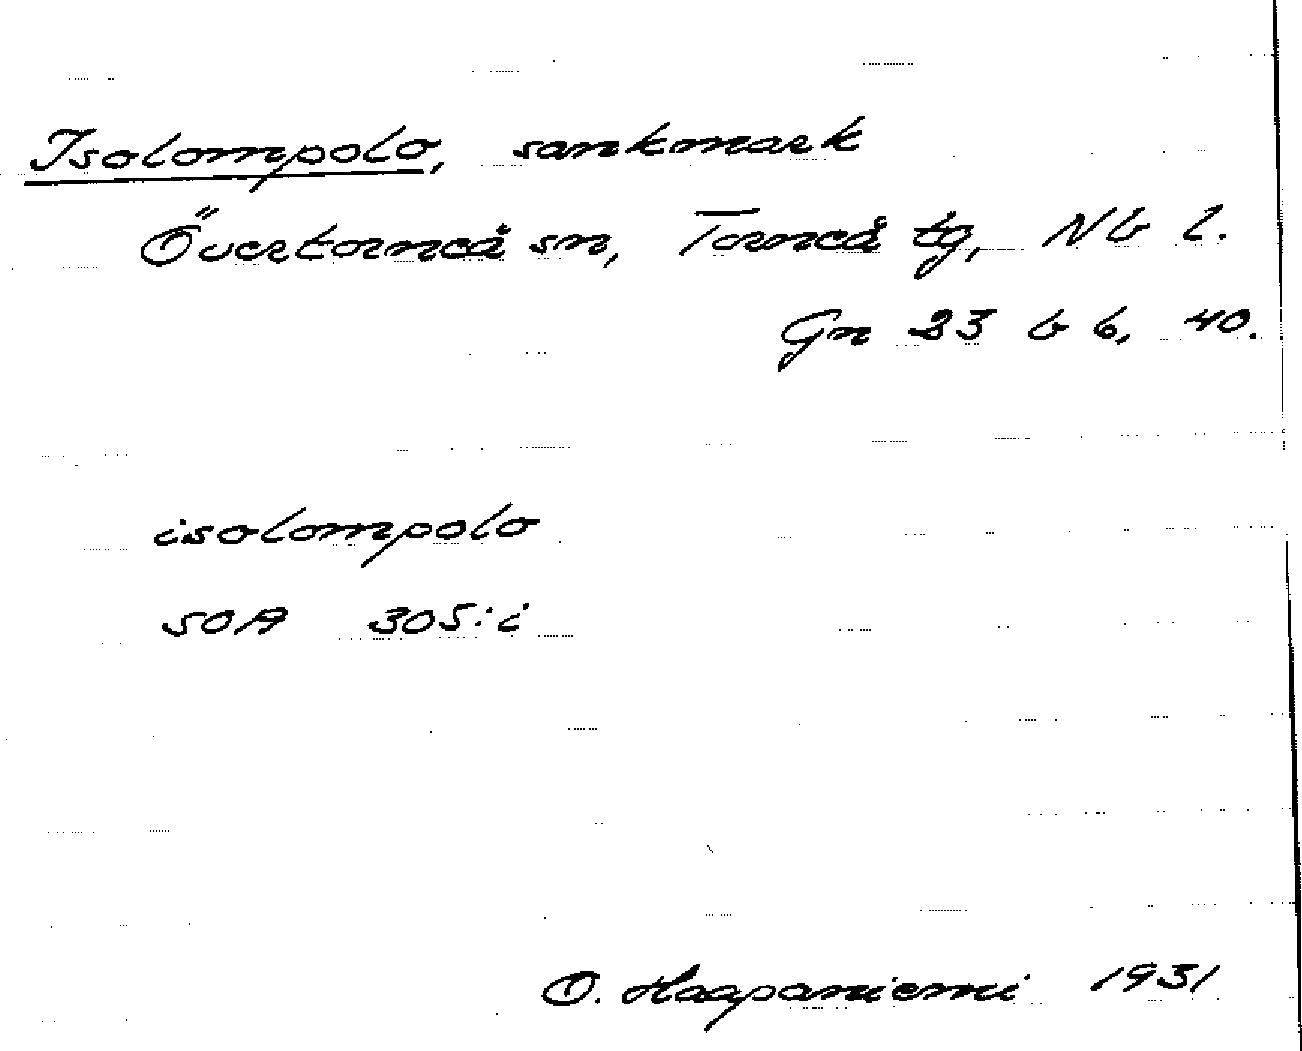 Isolompolo, sankmark
Övertorneå sn, Torneå tg, Nb l.
Gn 23 b 6, 40.
isolompolo
SOA 305:i
O. Haapaniemi 1931